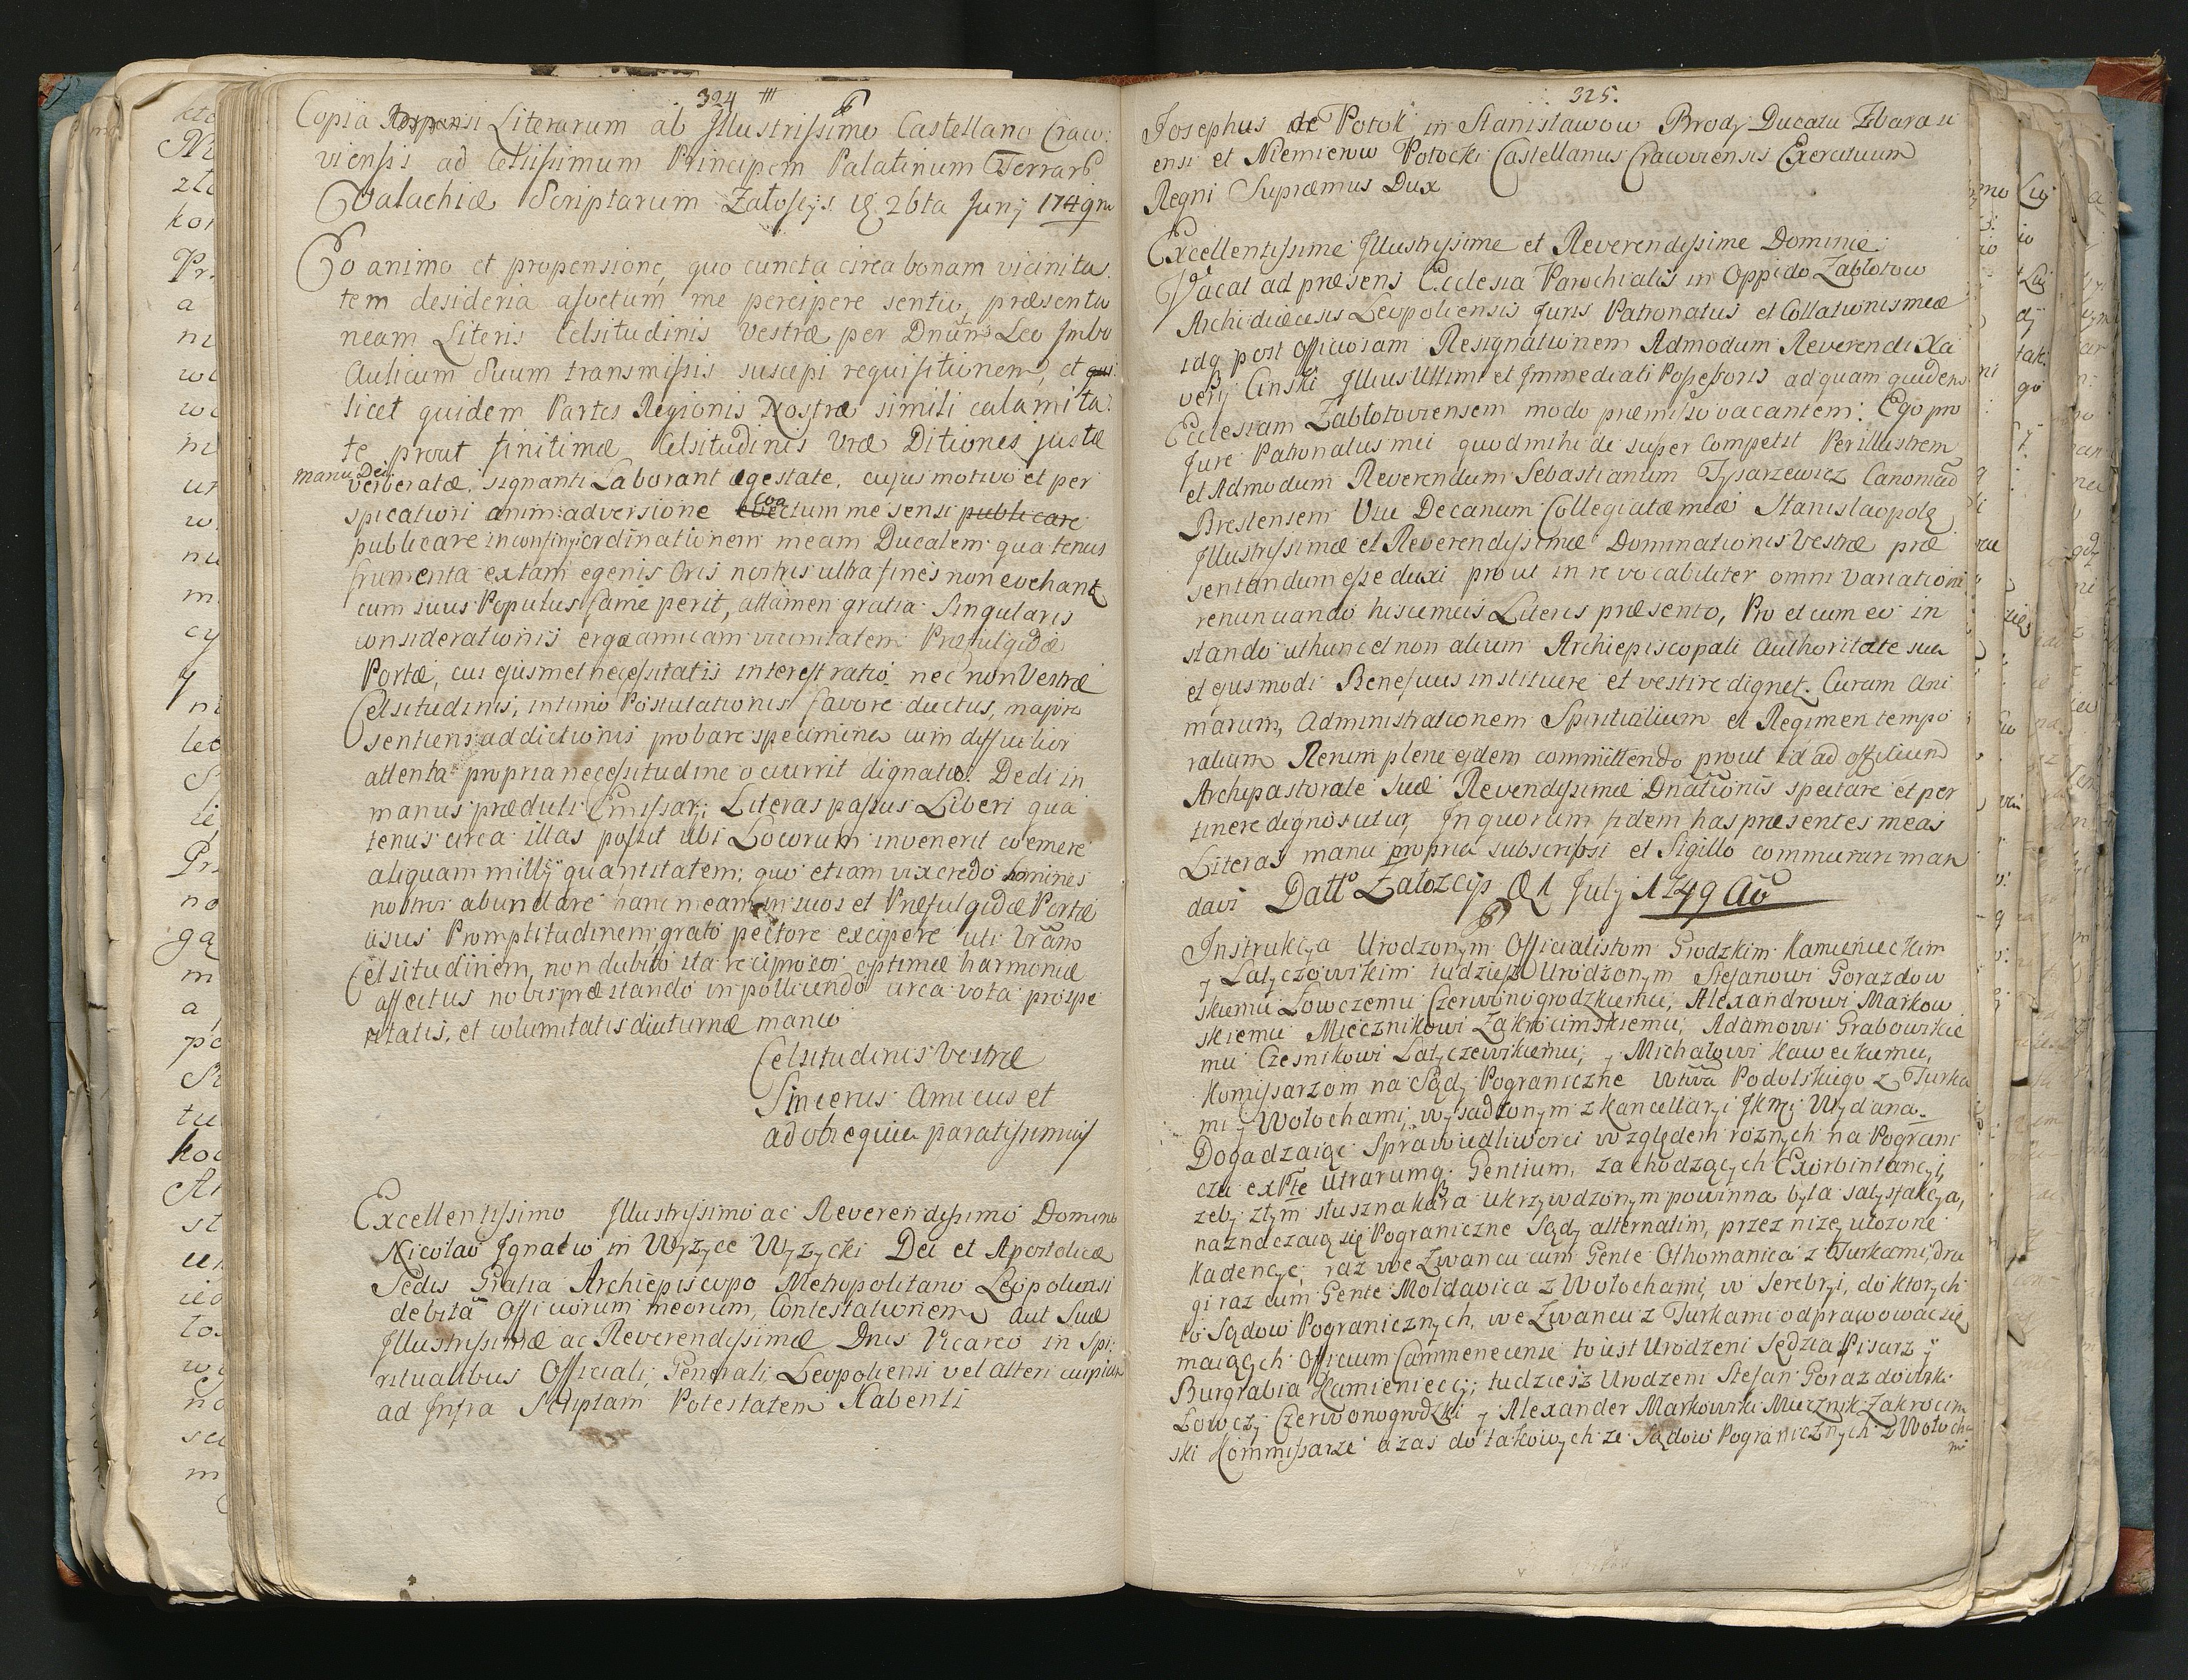 324
Copia Responsi Literarum ab Illustrissimo Castellano Craco:
viensis ad Celsissimum Principem Palatinum Terrarū
Valachiæ Scriptarum Załoscys 26ta Junij 1749no
Eo animo et propensione, quo cuncta circa bonam vicinita:
tem desideria asvetum me percipere sentio, præsenta
neam Literis Celsitudinis Vestræ per Dnūm Leo Imbo
Aulicum Suum transmissis suscepi requisitionem, et
licet quidem Partes Regionis Nostræ simili calamita:
te prout finitimæ Celsitudinis Vræ Ditiones justæ
manu Dei verberatæ, signanti Laborant egestate, cujus motivo et per
spicatiori animadversione coactum me sensi publicare
publicare in confinijs ordinationem meam Ducalem quatenus
frumenta extam egenis Oris nostris ultra fines non evehant
cum suus Populus fame perit, attamen gratia Singularis
considerationis erga amicam vicinitatem Præfulgidæ
Portæ, cui ejusmet necessitatis interest ratio nec non Vestræ
Celsitudinis, intimo Postulationis favore ductus, majori
sentiens addictionis probare specimine cum difficilior
attenta propria necessitudine occurrit dignatio. Dedi in
manus præduti Emissarij Literas passus Liberi qua
tenus circa illas possit ubi Locorum invenerit coemere
aliquam millij quantitatem; quo etiam vix credo homines
nostros abundare hanc meam in suos et Præfulgidæ Portæ
usus Promptitudinem, grato pectore excipere uti Vram
Celsitudinem, non dubito ita reciprocos optimæ harmoniæ
affectus nobis præstando in pollicendo circa vota prospe
ritatis, et columitatis diuturnæ maneo
Celsitudinis Vestræ
Sincerus Amicus et
ad obsequia paratissimus
Excellentissimo Illustrissimo ac Reverendissimo Domino
Nicolao Ignatio in Wyżyce Wyżycki Dei et Apostolicæ
Sedis Gratia Archiepiscopo Metropolitano Leopoliensi
debitā Officiorum meorum, Contestationem aut Suæ
Illustrissimæ ac Reverendissimæ Dnis Vicareo in Spi:
ritualibus Officiali Generali Leopoliensi vel alteri cuipiam
ad Infra Scriptam Potestatem Habenti
325.
Josephus de Potok in Stanisławow Brody Ducatu Zbarasi
ensi et Niemirow Potocki Castellanus Cracoviensis Exercituum
Regni Supræmus Dux
Excellentissime Illustrissime et Reverendissime Domine
Vacat ad præsens Ecclesia Parochialis in Oppido Zabłotow
Archidiæcesis Leopoliensis Juris Patronatus et Collationis meæ
idq post officiosam Resignationem Admodum Reverendi Xa
verij Cinski Illius Ultimi et Immediati Possessoris ad quam quidem
Ecclesiam Zabłotoviensem modo præmisso vacantem: Ego pro
Jure Patronatus mei quod mihi de super Competit Perillustrem
et Admodum Reverendum Sebastianum Tysarzewicz Canonicū
Brestensem Vice Decanum Collegiatæ meæ Stanislaopolę
Illustrissimæ et Reverendissimæ Dominationis Vestræ præ
sentandum esse duxi prout in re vocabiliter omni Variationi
renunciando hisce meis Literis præsento, Pro et cum eo in
stando ut hunc et non alium Archiepiscopali Authoritate sua
et ejusmodi Beneficius instituere et vestire dignet. Curam Ani
marum, Administrationem Spiritualium et Regimen tempo
ralium Rerum plene ejdem committendo prout id ad officium
Archipastorale Suæ Revendissimæ Dnationis spectare et per
tinere dignoscutur, In quorum fidem has præsentes meas
Literas manu propria subscripsi et Sigillo communiri man
davi Datto Załozcijs D 1 July 1749 Ao
Instrukcya Urodzonym Officialistom Grodzkim Kamienieckim
y Latyczowskim tudziesz Urodzonym Stefanowi Gorazdow
skiemu Łowczemu Czerwonogrodzkiemu, Alexandrowi Markow
skiemu Miecznikowi Zakrocimskiemu, Adamowi Grabowskie
mu Czesnikowi Latyczewskiemu, y Michałowi Haweckiemu,
Komissarzom na Sądy Pograniczne Wttwa Podolskiego z Turka
mi y Wołochami, wysadzonym z Kancellaryi JKmci Wydana.
Dogadzaiąc Sprawiedliwosci względem roznych na Pograni
czu ex Pte utrarumq Gentium, zachodzących Exorbintancyi,
zeby ztym słuszna kara ukrzywdzonym powinna była satysfakcya,
naznaczaią się Pograniczne Sądy alternatim, przez nizey ułozone
Kadencye, raz we Zwancu cum Gente Othomanica z Turkami, dru
gi raz cum Gente Moldavica z Wołochami, w Serebryi, do ktorych
to Sądow Pogranicznych, we Zwancu z Turkami odprawować się
maiących Officium Cammenecense to iest Urodzeni Sędzia Pisarz y
Burgrabia Kamieniecci; tudziesz Urodzeni Stefan Gorazdowski
Łowczy Czerwonogrodzki y Alexander Markowski Miecznik Zakrocim
ski Kommissarze a zas do takowych ze Sądow Pogranicznych z Wołocha
mi